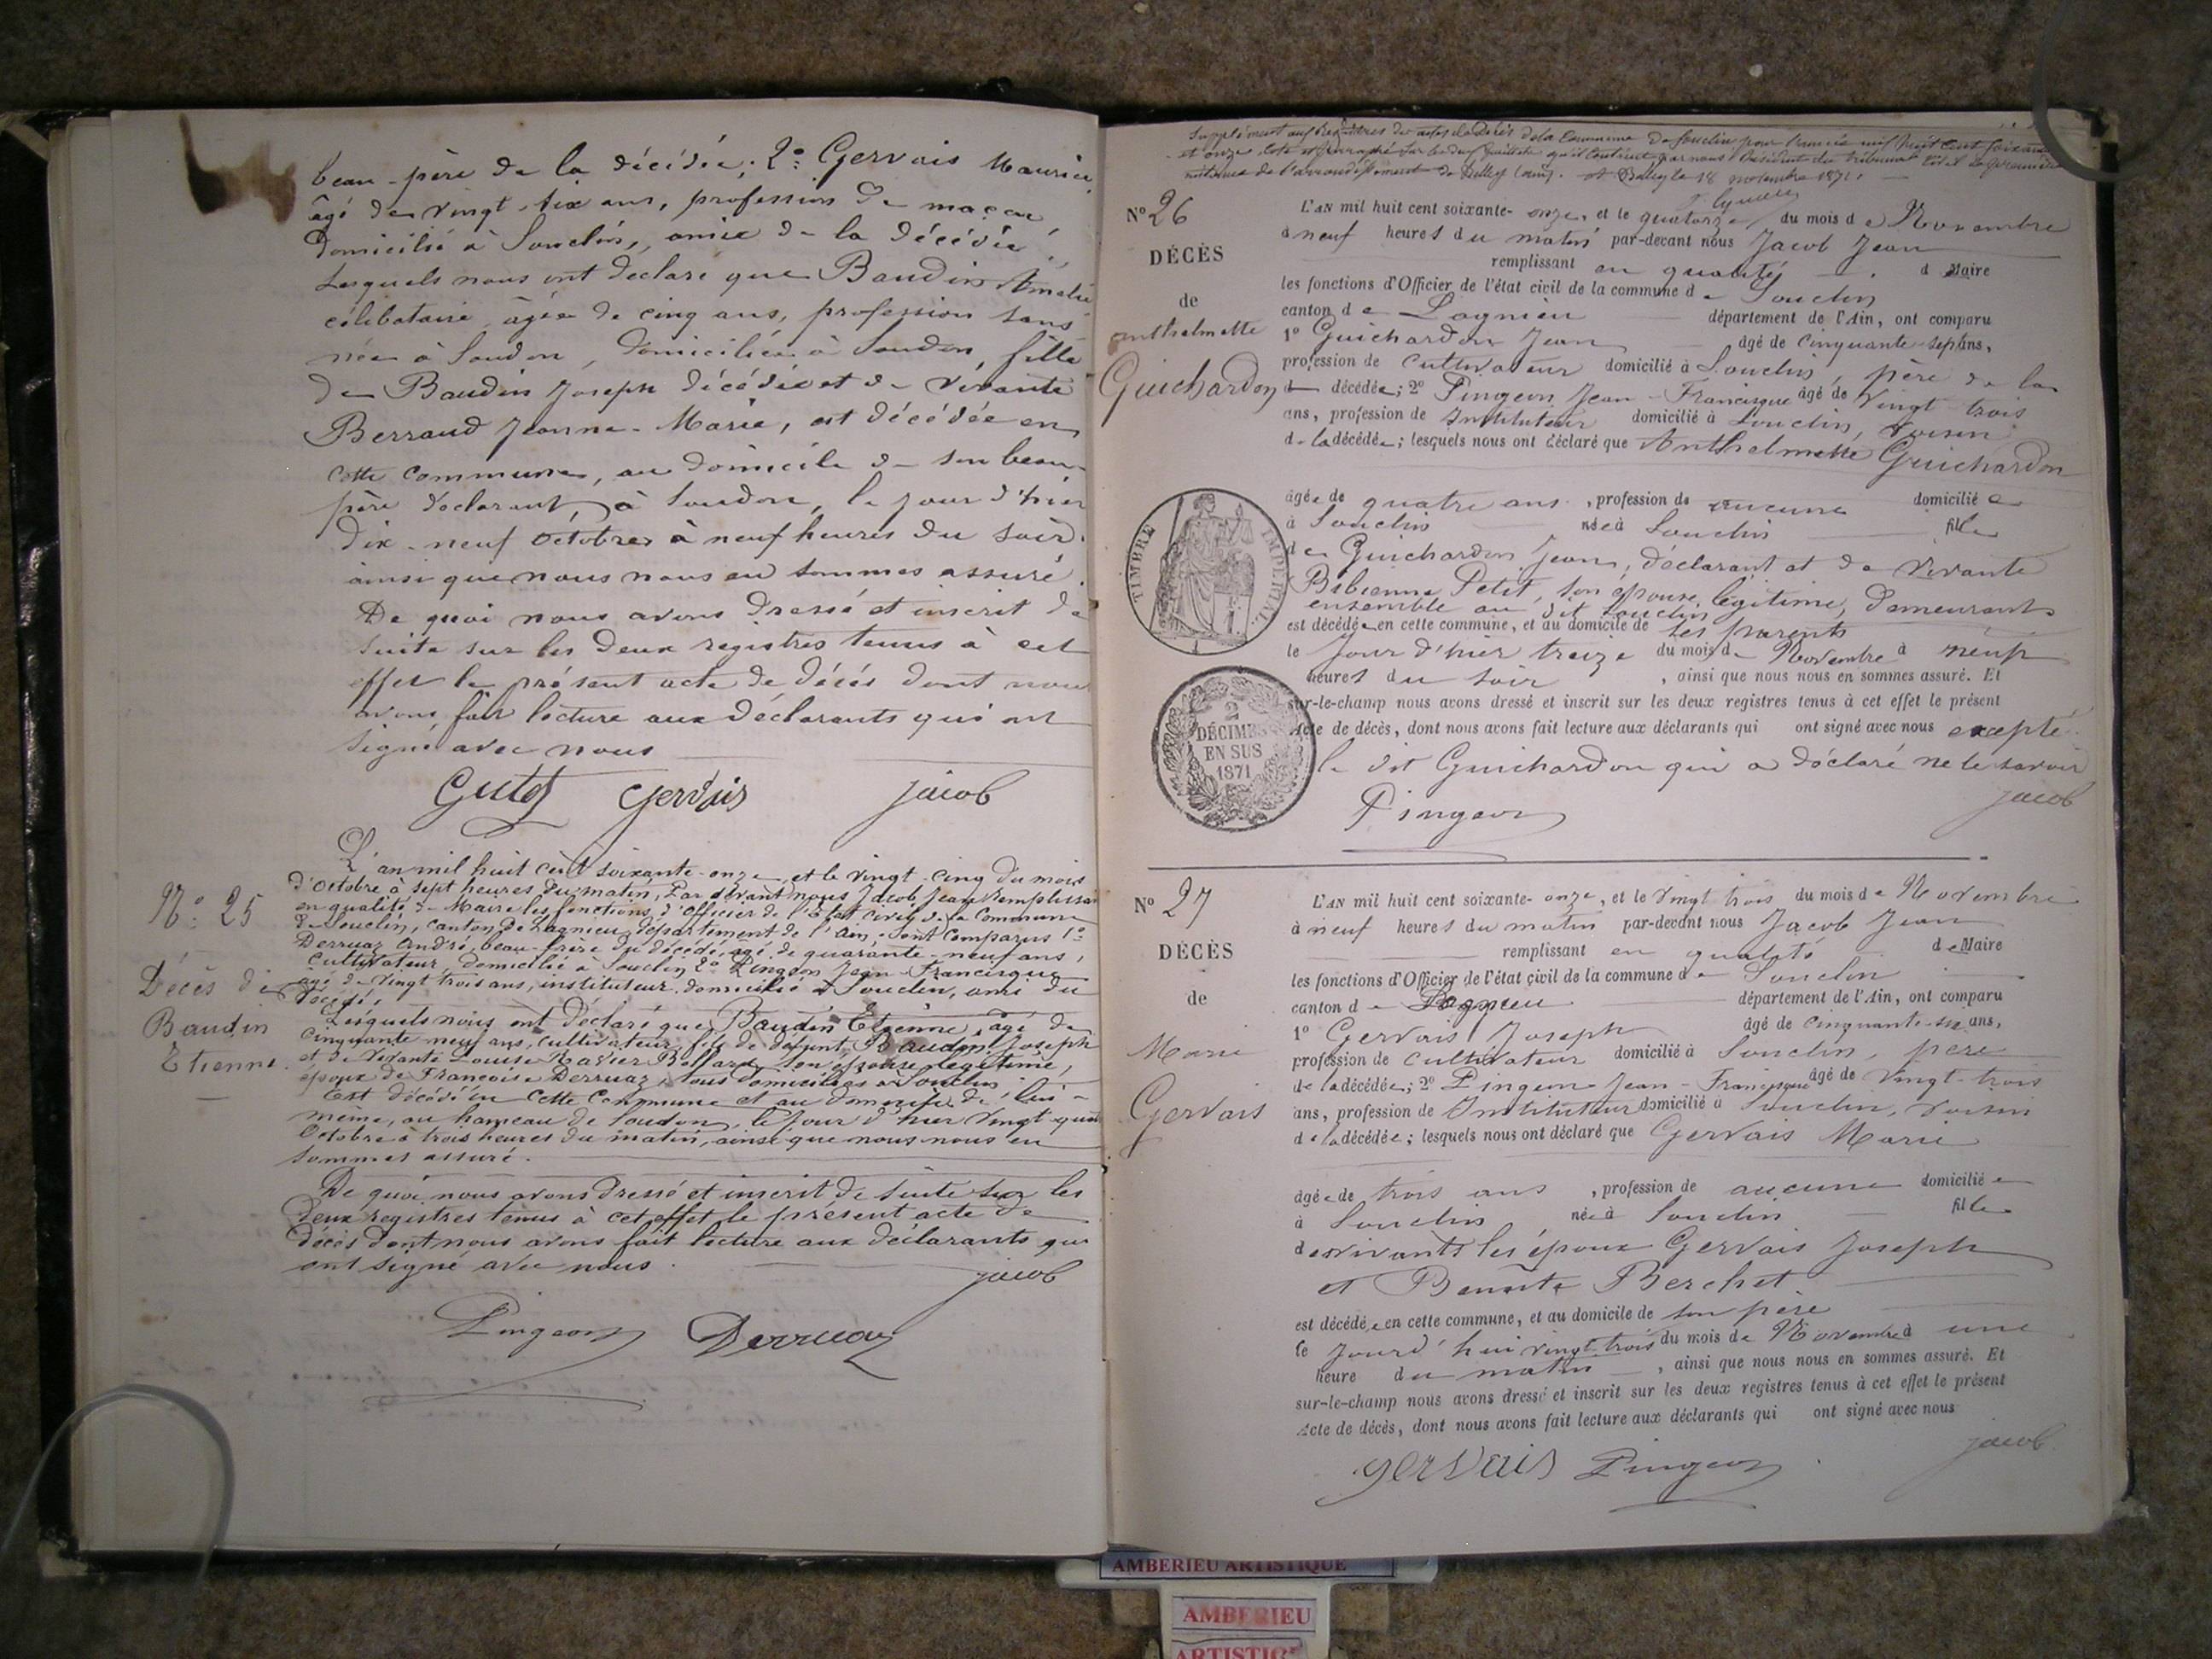 beau-père de la décédée; 2º Gervais Maurice,
âgé de vingt-six ans, profession de maçon
domicilié à Souclin, amie de la décédée
Lesquels nous ont déclaré que Baudin Amélie
célibataire âgée de cinq ans, profession sans
née à Soudon, domiciliée à Soudon, fille
de Baudin Joseph décédé et de vivante
Berraud Jeanne-Marie, est décédée en
cette commune, au domicile de son beau-
père déclarant, à Soudon, le jour d'hier
dix-neuf Octobre à neuf heures du soir.
ainsi que nous nous en sommes assuré.
De quoi nous avons dressé et inscrit de
suite sur les deux registres tenus à cet
effet le présent acte de décès dont nous
avons fait lecture aux déclarants qui ont
signé avec nous
Gervais Jacob
Nº 25
Décès de
Baudin
Etienne
L'an mil huit cent soixante-onze et le vingt-cinq du mois
d'Octobre à sept heures du matin, Par devant nous Jacob Jean remplissant
en qualité de Maire les fonctions d'officier de l'Etat civil de la Commune
de Souclin, canton de Lagnieu, département de l'Ain. Sont comparus 1º
Derruaz André, beau-frère du décédé, âgé de quarante-neuf ans,
cultivateur, domicilié à Souclin 2º Pingeon Jean-Francisque
âgé de vingt trois ans, instituteur domicilié à Souclin, ami du
décédé,
Lesquels nous ont déclaré que Baudin Etienne, âgé de
cinquante neuf ans, cultivateur, fils de défunt Baudin Joseph
et de vivante Louise Ravier son épouse légitime,
époux de Françoise Derruaz, tous domiciliés à Souclin
Est décédé en cette Commune et au domicile de lui-
même, au hameau de Soudon, le jour d'hier vingt-quatre
Octobre à trois heures du matin, ainsi que nous nous en
sommes assuré.
De quoi nous avons dressé et inscrit de suite sur les
deux registres tenus à cet effet le présent acte de
décès dont nous avons fait lecture aux déclarants qui
ont signé avec nous.
Jacob
Pingeon Derruaz
Supplément aux Registres des actes de Décès de la Commune de Souclin pour l'année mil huit cent soixante
et onze, coté et paraphé sur les deux feuillets qu'il contient par nous Président du tribunal civil de première
instance de l'arrondissement de Belley (Ain). A Belley le 18 novembre 1871.
Nº 26
DÉCÈS
de
Anthelmette
Guichardon
L'AN mil huit cent soixante- onze, et le quatorze du mois de Novembre
à neuf heures du matin par-devant nous Jacob Jean
remplissant en qualité de Maire
les fonctions d'Officier de l'état civil de la commune de Souclin
canton de Lagnieu département de l'Ain, ont comparu
1º Guichardon Jean âgé de cinquante-sept ans,
profession de cultivateur domicilié à Souclin, père de la
décédée; 2º Pingeon Jean-Francisque âgé de vingt trois
ans, profession de Instituteur domicilié à Souclin, voisin
de la décédée; lesquels nous ont déclaré que Anthelmette Guichardon
âgée de quatre ans, profession de aucune domiciliée
à Souclin née à Souclin fille
de Guichardon Jean, déclarant et de vivante
Bibienne Petit, son épouse légitime, demeurant
ensemble au dit Souclin
est décédée en cette commune, et au domicile de ses parents
le jour d'hier treize du mois de Novembre à neuf
heures du soir, ainsi que nous nous en sommes assuré. Et
sur-le-champ nous avons dressé et inscrit sur les deux registres tenus à cet effet le présent
Acte de décès, dont nous avons fait lecture aux déclarants qui ont signé avec nous excepté
le dit Guichardon qui a déclaré ne le savoir
Pingeon Jacob
TIMBRE IMPÉRIAL
2
DÉCIMES
EN SUS
1871
Nº 27
DÉCÈS
de
Marie
Gervais
L'AN mil huit cent soixante- onze, et le vingt trois du mois de Novembre
à neuf heures du matin par-devant nous Jacob Jean
remplissant en qualité de Maire
les fonctions d'Officier de l'état civil de la commune de Souclin
canton de Lagnieu département de l'Ain, ont comparu
1º Gervais Joseph âgé de cinquante-six ans,
profession de cultivateur domicilié à Souclin, père
de la décédée; 2º Pingeon Jean-Francisque âgé de vingt-trois
ans, profession de Instituteur domicilié à Souclin, voisin
de la décédée; lesquels nous ont déclaré que Gervais Marie
âgée de trois ans, profession de aucune domiciliée
à Souclin, née à Souclin fille
de vivants les époux Gervais Joseph
et Benoîte Berchet
est décédée en cette commune, et au domicile de son père
le jourd'hui vingt-trois du mois de Novembre à une
heure du matin, ainsi que nous nous en sommes assuré. Et
sur-le-champ nous avons dressé et inscrit sur les deux registres tenus à cet effet le présent
Acte de décès, dont nous avons fait lecture aux déclarants qui ont signé avec nous
Gervais Pingeon Jacob
AMBERIEU ARTISTIQUE
AMBERIEU
ARTISTIQ